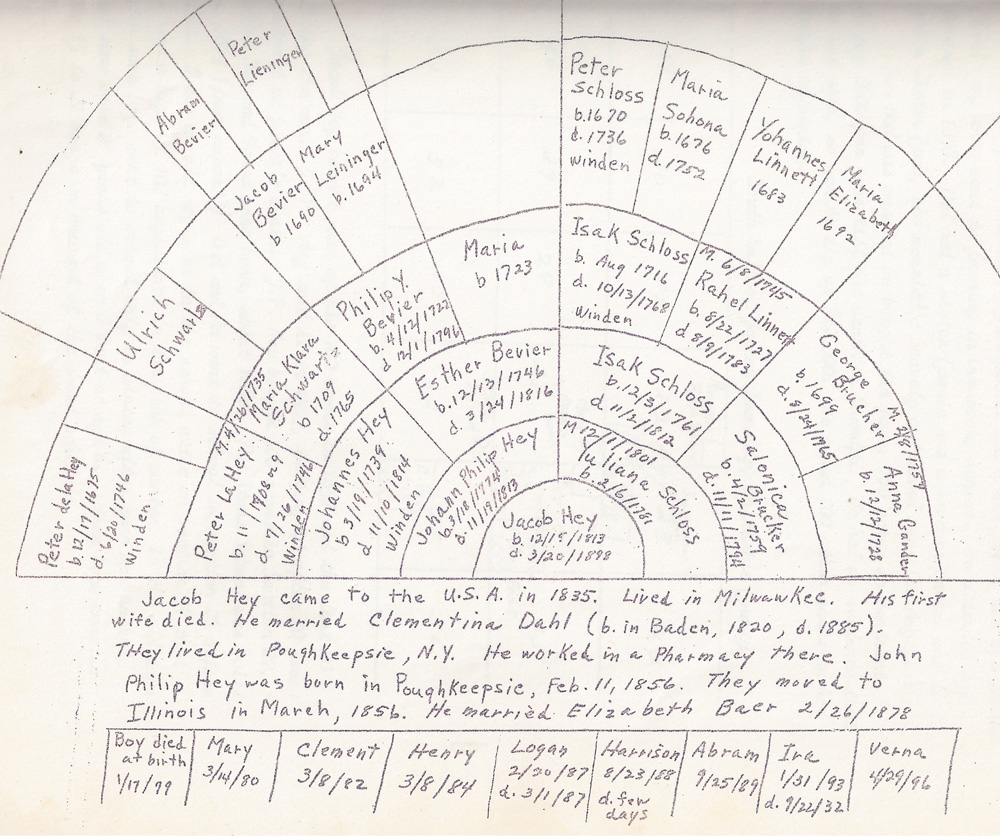 Peter
Lieninger
Abram
Bevier
Peter
Schloss
b.1670
d.1736
winden
Maria
Sohona
b.1676
d.1752
Yohannes
Linnett
1683
Maria
Elizabeth
1692
Mary
Leininger
b.1694
Jacob
Bevier
b.1690
Ulrich
Schwartz
Peter delaHey
b.12/17/1675
d.6/20/1746
Winden
M.4/26/1735
Maria Klara
Schwartz
b 1709
d.1765
Peter LaHey
d. 7/26/1746
Winden
Philip Y.
Bevier
b.4/12/1722
d 12/1/1796
Maria
b 1723
Isak Schloss
b. Aug 1716
d. 10/13/1768
Winden
M. 6/8/1745
Rahel Linnett
b.8/22/1727
d 8/9/1783
George
Brucher
b.1699
M.
Anna Gander
b.12/12/1728
Johannes Hey
b 3/19/1739
d 11/10/1814
Winden
Esther Bevier
b.12/13/1746
d 3/24/1816
Isak Schloss
b.12/3/1761
d 11/2/1812
Salonica
Brucker
b.4/2/1759
d.11/1/1794
Johann Philip Hey
b.3/18/1774
d.11/19/1813
M 12/1/1801
Juliana Schloss
b.2/6/1781
Jacob Hey
b.12/15/1813
d. 3/20/1898
Jacob Hey came to the U.S.A. in 1835. Lived in Milwaukee. His first
wife died. He married Clementina Dahl (b. in Baden, 1820, d. 1885).
They lived in Poughkeepsie, N.Y. He worked in a Pharmacy there. John
Philip Hey was born in Poughkeepsie, Feb. 11, 1856. They moved to
Illinois in March, 1856. He married Elizabeth Baer 2/26/1878
Boy died
at birth
1/17/79
Mary
3/14/80
Clement
3/8/82
Henry
3/8/84
Logan
2/20/87
d. 3/1/87
Harrison
8/23/88
d. few
days
Abram
9/25/89
Ira
1/31/93
d. 9/22/32
Verna
4/29/96